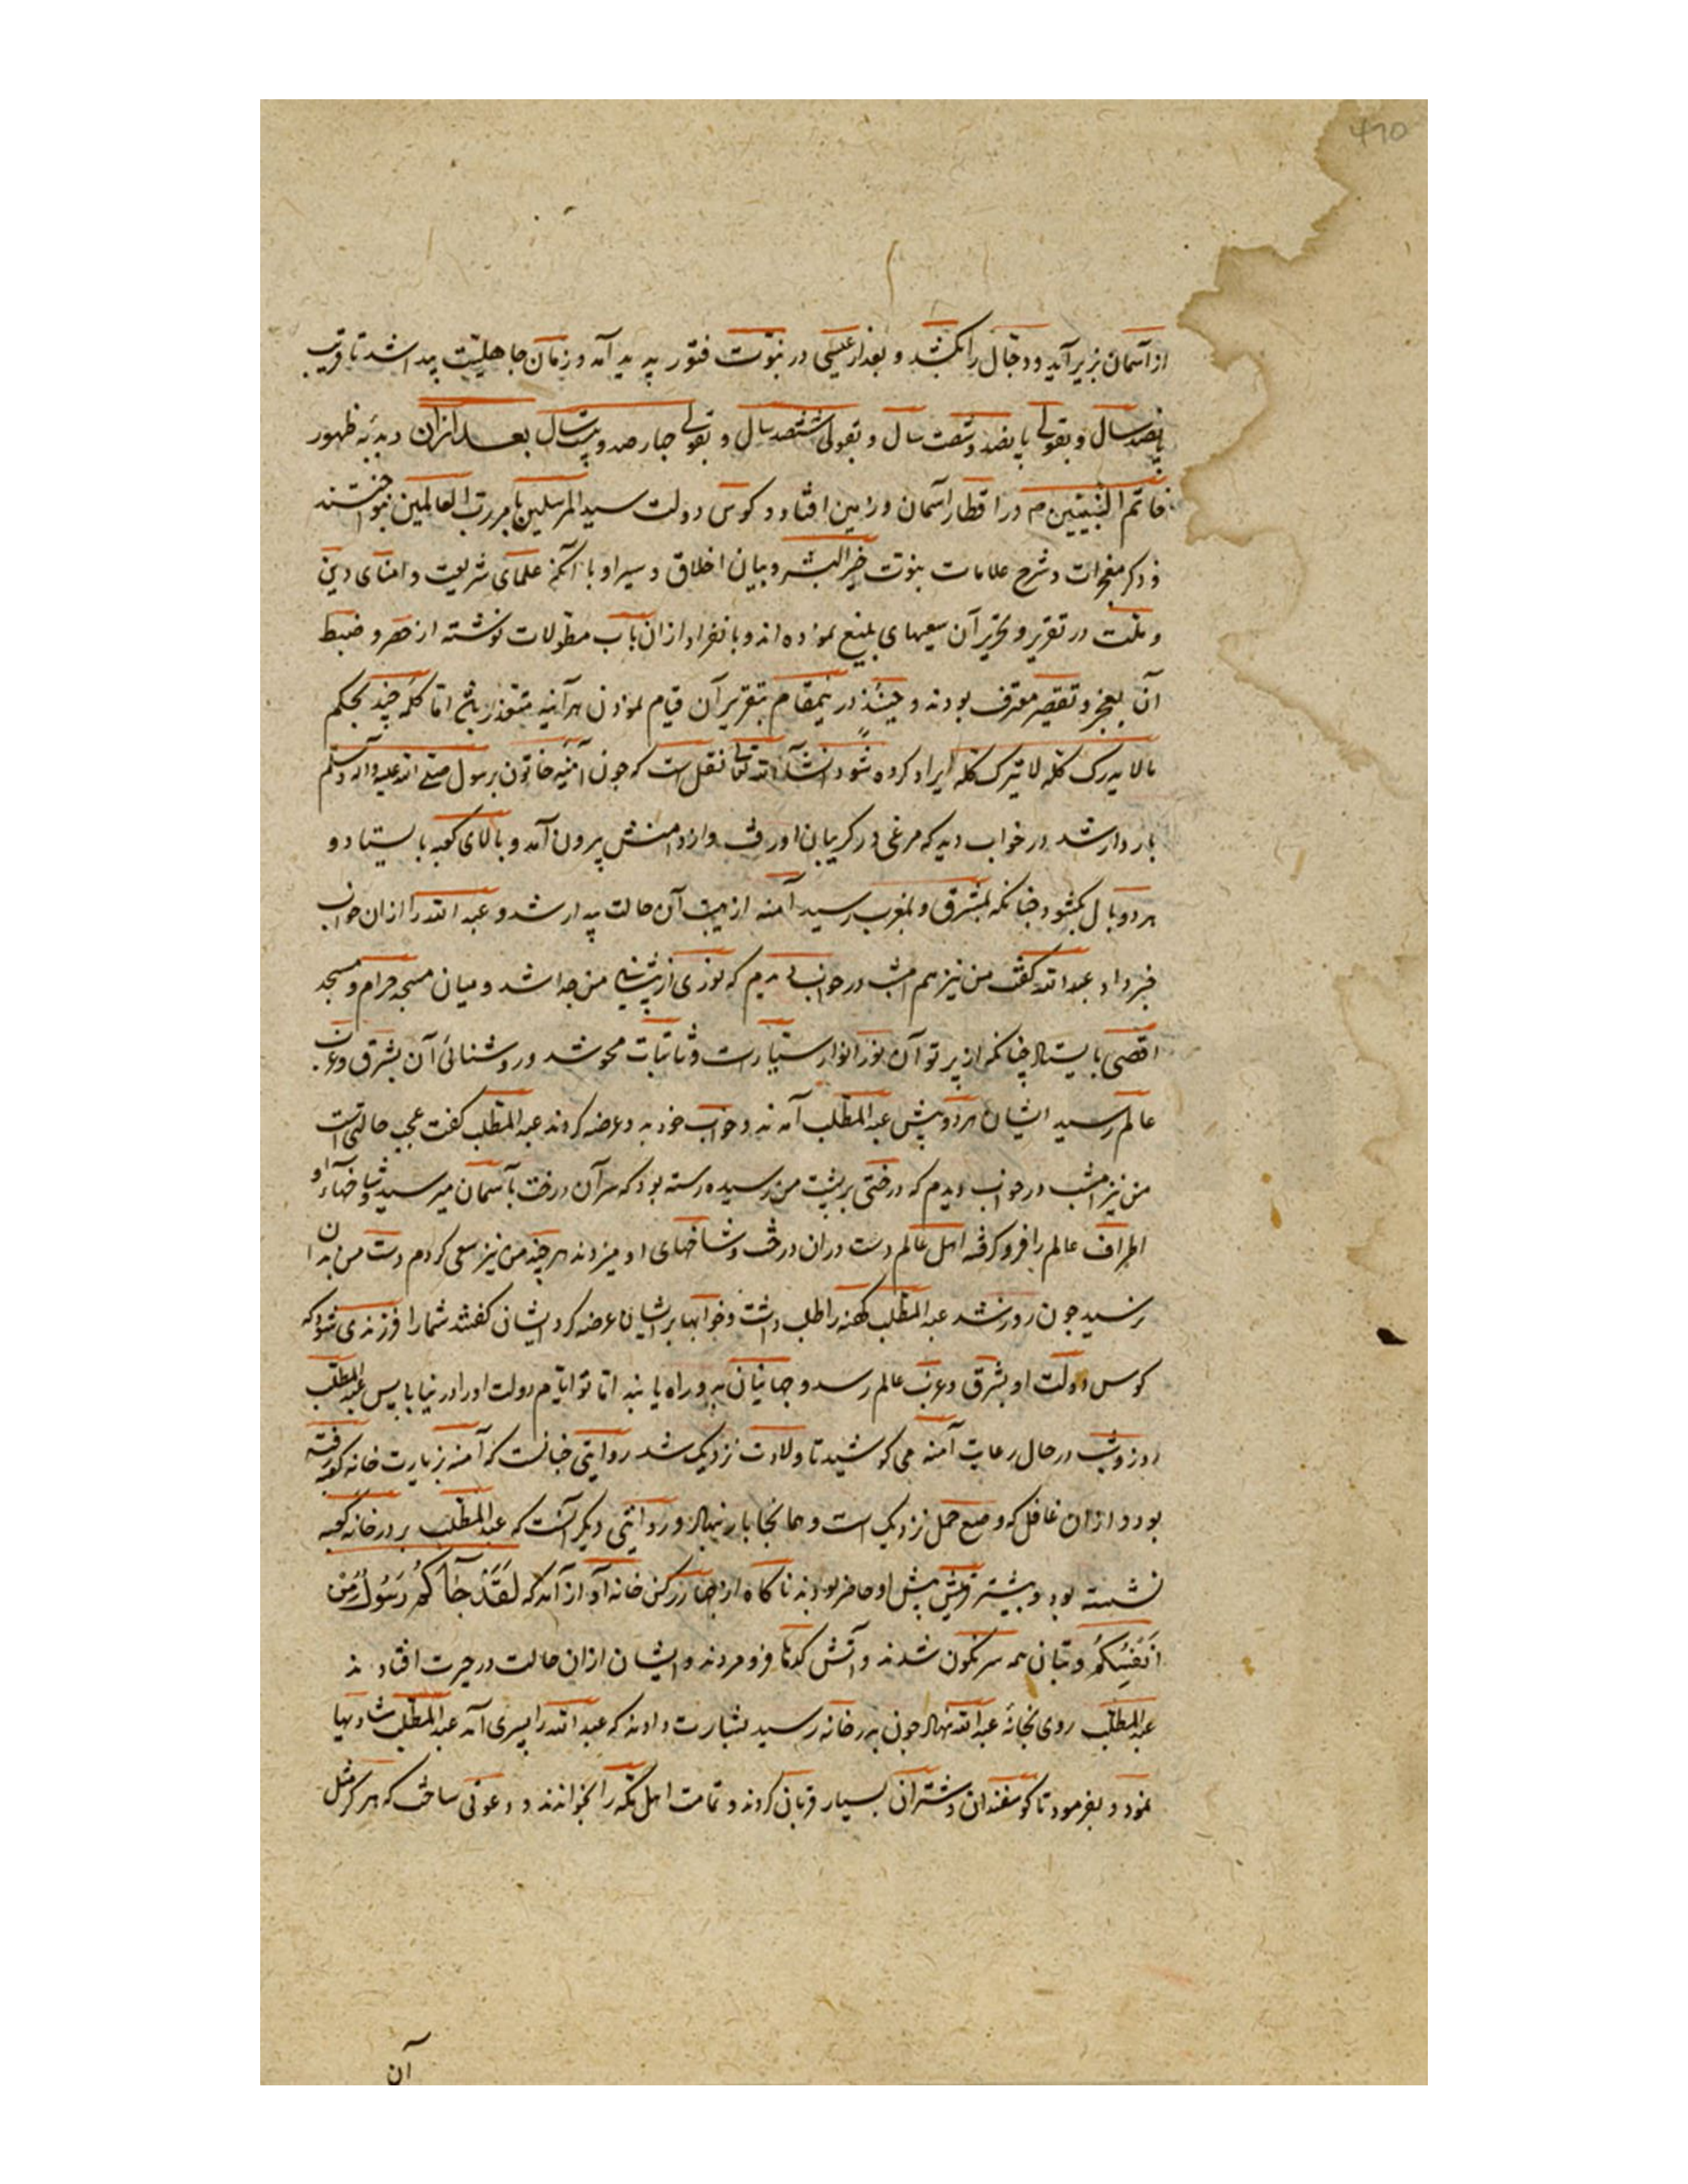 ۴۱۵
از آسمان بزیر آید و دجال را بکشد و بعد از عیسی در نبوت فتور پدید آمد و زمان جاهلیت پیدا شد تا قریب
پانصد سال و بقولی پانصد و شصت سال و بقولی ششصد سال و بقولی چهارصد و بیست سال بعد ازان دبدبه ظهور
خاتم النبیین م در اقطار آسمان و زمین افتاد و کوس دولت سید المرسلین بامر رب العالمین بنواختند
و ذکر معجزات و شرح علامات نبوت خیر البشر و بیان اخلاق و سیر او با آنکه علمای شریعت و امنای دین
و ملت در تقریر و تحریر آن سعیهای بلیغ نموده اند و بانفراد ازان باب مطولات نوشته از حصر و ضبط
آن بعجز و تقصیر معترف بودند و حینئذ درینمقام بتقریر آن قیام نمودن هرآینه متعذر باشد اما کلمه چند بحکم
مالا یدرک کله لا یترک کله ایراد کرده شود انشآء الله تعالی نقل است که چون آمنه خاتون برسول صلی الله علیه و اله وسلم
باردار شد در خواب دید که مرغی در گریبان او رفت و از دامنش بیرون آمد و بالای کعبه بایستاد و
هر دو بال بگشود چنانکه بمشرق و بمغرب رسید آمنه از هیبت آن حالت بیدار شد و عبد الله را ازان خواب
خبر داد عبد الله گفت من نیز هم امشب در خواب دیدم که نوری از پیشانی من جدا شد و میان مسجد حرام و مسجد
اقصی بایستاد چنانکه از پرتو آن نور انوار سیارات و ثابتات محو شد و روشنائی آن بشرق و غرب
عالم رسید ایشان هر دو پیش عبد المطلب آمدند و خواب خود بدو عرضه کردند عبد المطلب گفت عجب حالتی است
من نیز امشب در خواب دیدم که درختی بر پشت من رسیده رسته بود که سر آن درخت بآسمان میرسید و شاخهآء او
اطراف عالم را فرو گرفته اهل عالم دست دران درخت و شاخهای او میزدند هر چند من نیز سعی کردم دست من بدان
نرسید چون روز شد عبد المطلب کهنه را طلب داشت و خوابها بر ایشان عرضه کرد ایشان گفتند شما را فرزندی شود که
کوس دولت او بشرق و غرب عالم رسد و جهانیان بدو راه یابند اما تو ایام دولت او را در نیابی پس عبد المطلب
روز و شب در حال رعایت آمنه می کوشید تا ولادت نزدیک شد روایتی چنانست که آمنه بزیارت خانه کعبه رفته
بود و ازان غافل که وضع حمل نزدیک است و همانجا بار بنهاد و روایتی دیگر آنست که عبد المطلب بر در خانه کعبه
نشسته بود و بیشتر قریش پیش او حاضر بودند ناگاه از چهار رکن خانه آواز آمد که لَقَدْ جَآءَكُمْ رَسُولٌ مِنْ
اَنْفُسِكُمْ و بتان همه سرنگون شدند و آتش کدها فرو مردند و ایشان ازان حالت در حیرت افتادند
عبد المطلب روی بخانهٔ عبد الله نهاد چون بدر خانه رسید بشارت دادند که عبد الله را پسری آمد عبد المطلب شادیها
نمود و بفرمود تا گوسفندان و شتران بسیار قربان کردند و تمامت اهل مکه را بخواندند و دعوتی ساخت که هرگز مثل
آن